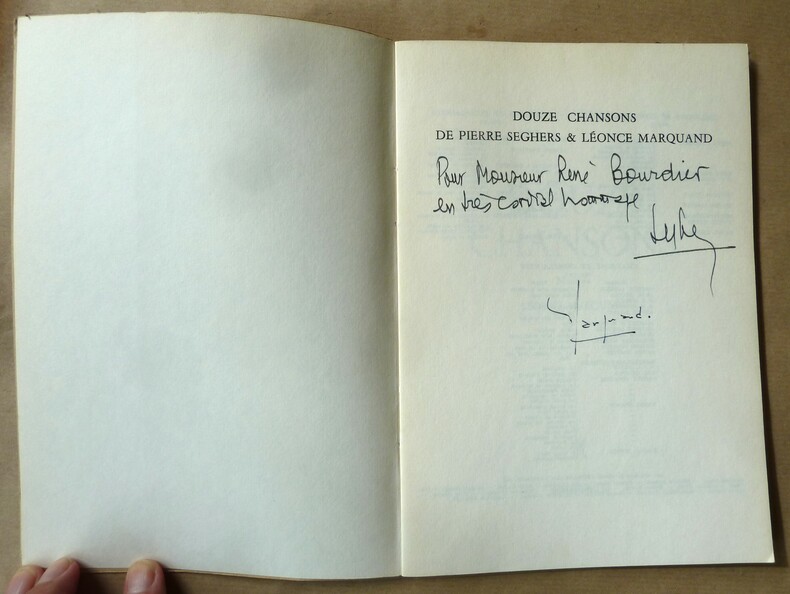 DOUZE CHANSONS
DE PIERRE SEGHERS & LÉONCE MARQUAND
Pour Monsieur René Bourdier
en très cordial hommage
Seghers
Marquand.
CHANSONS